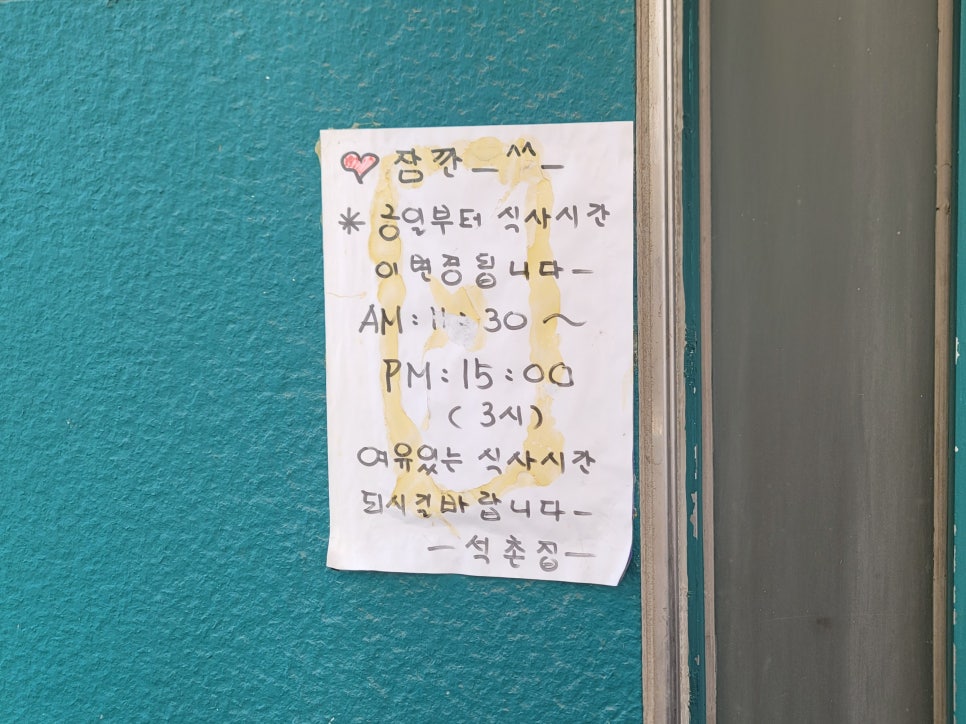 잠깐_^^_
* 금일부터 식사시간
이변경됩니다-
AM:11:30~
PM:15:00
(3시)
여유있는 식사시간
되시길바랍니다-
-석촌정-